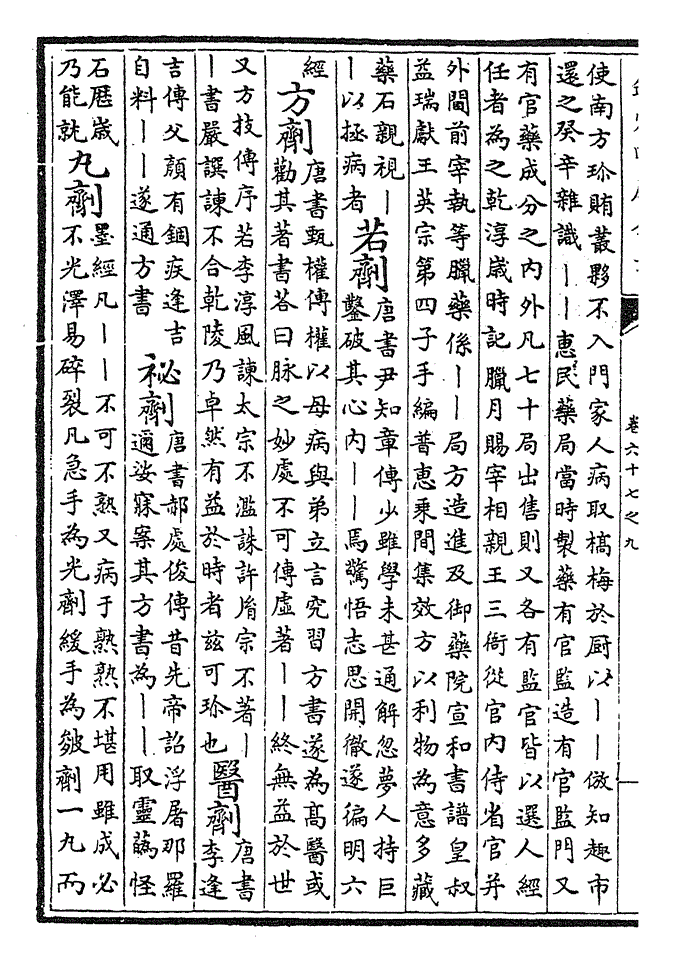 卷六十七之九
使南方珍賄叢夥不入門家人病取槁梅於厨以丨丨倣知趣市
還之癸辛雜識丨丨惠民藥局當時製藥有官監造有官監門又
有官藥成分之内外凡七十局出售則又各有監官皆以選人經
任者為之乾淳歲時記臘月賜宰相親王三衙從官内侍省官并
外間前宰執等臘藥係丨丨局方造進及御藥院宣和書譜皇叔
益瑞獻王英宗第四子手編普惠乗間集效方以利物為意多藏
藥石親視丨
丨以拯病者
若劑
唐書尹知章傳少雖學未甚通解忽夢人持巨
鑿破其心内丨丨焉驚悟志思開徹遂徧明六
經
方劑
唐書甄權傳權以母病與弟立言究習方書遂為髙醫或
勸其著書答曰脉之妙處不可傳虚著丨丨終無益於世
又方技傳序若李淳風諫太宗不濫誅許𦙍宗不著丨
丨書嚴譔諫不合乾陵乃卓然有益於時者兹可珍也
醫劑
唐書
李逢
吉傳父顔有錮疾逢吉
自料丨丨遂通方書
祕劑
唐書郝處俊傳昔先帝詔浮屠那羅
邇娑寐案其方書為丨丨取靈蘤怪
石歴歲
乃能就
丸劑
墨經凡丨丨不可不熟又病于熟熟不堪用雖成必
不光澤易碎裂凡急手為光劑緩手為皴劑一丸而